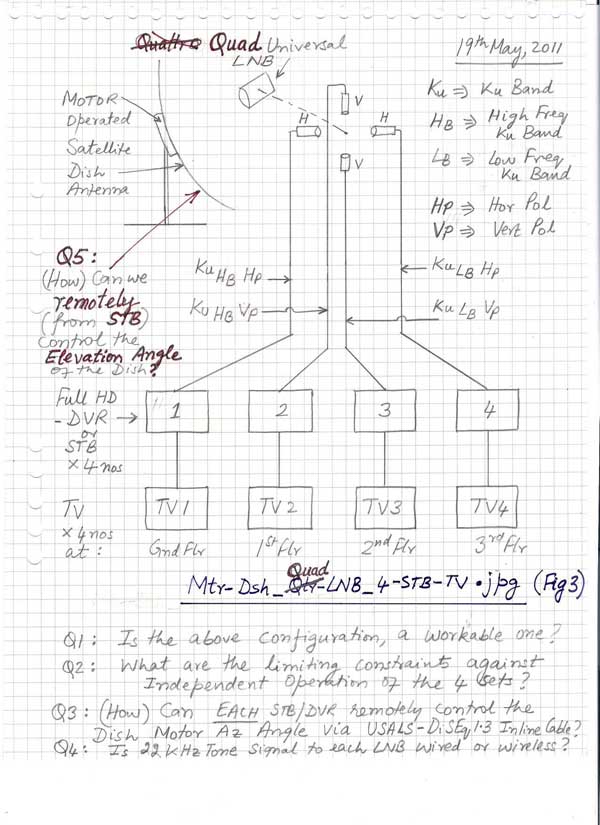 Quattro Quad Universal
LNB
19th May, 2011
MOTOR
Operated
Satellite
Dish
Antenna
Ku ⇒ Ku Band
HB ⇒ High Freq
Ku Band
LB ⇒ Low Freq
Ku Band
Hp ⇒ Hor Pol
Vp ⇒ Vert Pol
V
H
H
V
Q5:
(How) Can we
remotely
(from STB)
Control the
Elevation Angle
of the Dish?
Ku HB Hp
Ku LB Hp
Ku HB Vp
Ku LB Vp
Full HD
- DVR →
or
STB
× 4 nos
1 2 3 4
TV
× 4 nos
at:
TV1 TV2 TV3 TV4
Gnd Flr 1st Flr 2nd Flr 3rd Flr
Quad
Mtr-Dsh_Qtr-LNB_4-STB-TV.jpg (Fig 3)
Q1: Is the above configuration, a workable one?
Q2: What are the limiting constraints against
Independent Operation of the 4 sets?
Q3: (How) Can EACH STB/DVR remotely control the
Dish Motor Az Angle via USALS-DiSEqC 1.3 Inline Cable?
Q4: Is 22 KHz Tone Signal to each LNB Wired or Wireless?